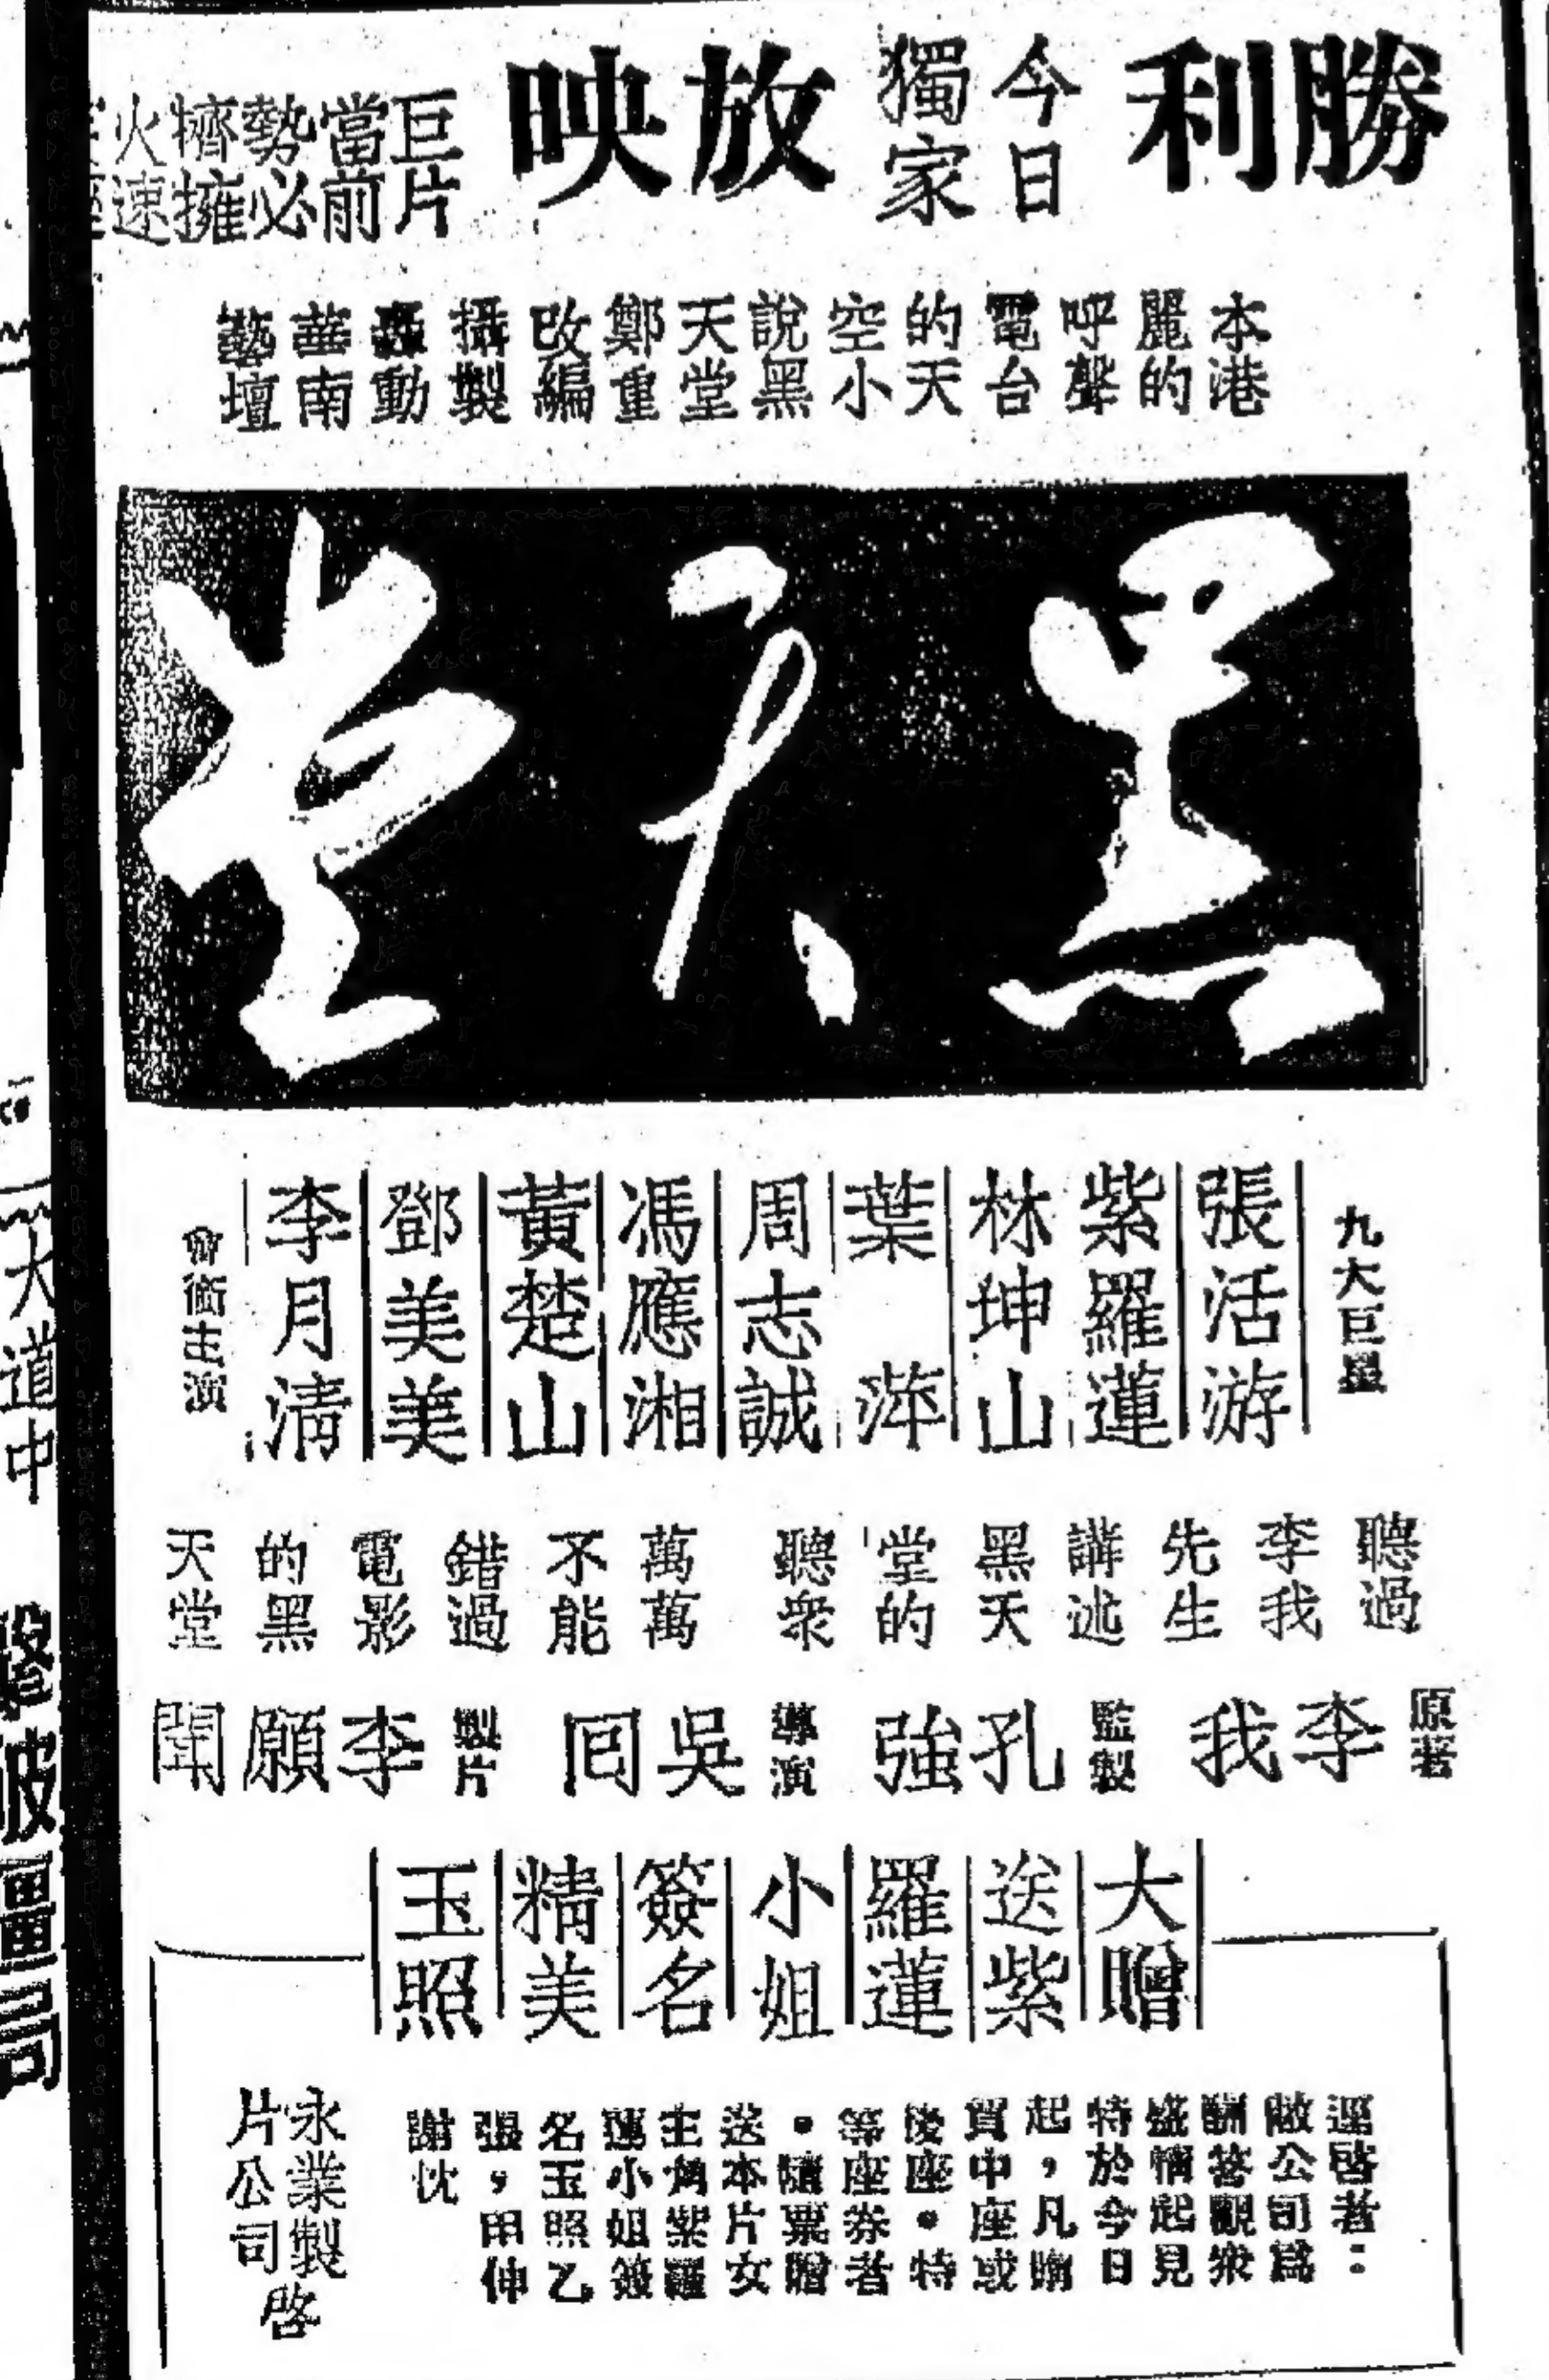 勝利
今日
獨家
放映
巨片
當前
勢必
擠擁
火速
本港
麗的
呼聲
電台
的天
空小
說黑
天堂
鄭重
改編
攝製
轟動
華南
藝壇
黑天堂
九大巨星
張活游
紫羅蓮
林坤山
葉萍
周志誠
馮應湘
黃楚山
鄧美美
李月清
會銜主演
聽過
李我
先生
講述
黑天
堂的
聽眾
萬萬
不能
錯過
電影
的黑
天堂
原著
李我
監製
孔強
導演
吳回
製片
李願聞
大贈
送紫
羅蓮
小姐
簽名
精美
玉照
逕啓者：
敝公司爲
酬答觀衆
盛情起見
特於今日
起，凡購
買中座或
後座・特
等座券者
・隨票贈
送本片女
主角紫羅
蓮小姐簽
名玉照乙
張，用伸
謝忱
永業製
片公司
啓
大道中